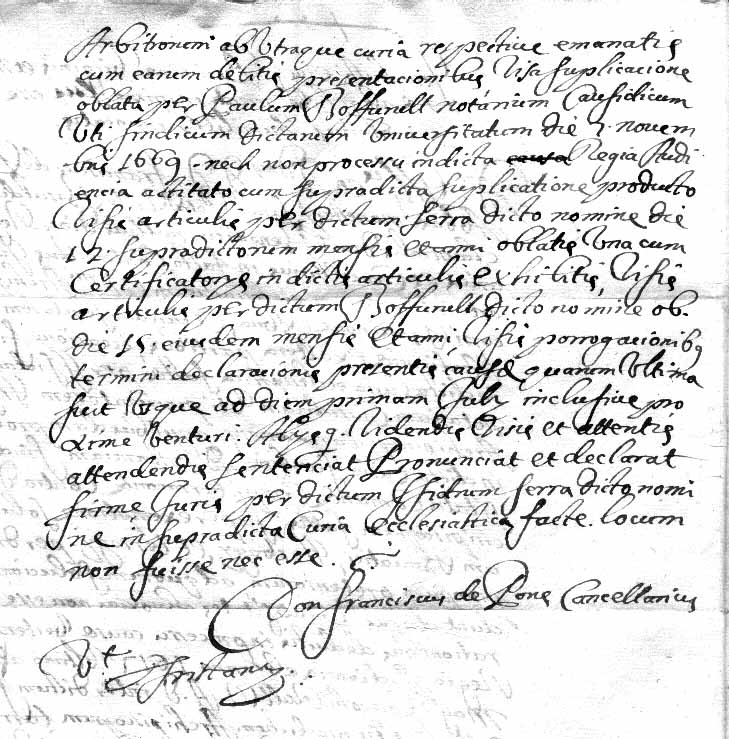 Arbitronim ab Utraque curia respective emanatis
cum earum debitis presentacionibus Visa suplicacione
oblata per Paulum Boffurull notarium Causidicum
Uti sindicum dictarum Universitatum die 7. novem
-bris 1669. nech non processu in dicta causa Regia Audi
encia actitato cum supradicta suplicatione producto
Visis articulis per dictum Serra dicto nomine die
12. supradictorum mensis et anni oblatis Una cum
Certificatorys in dictis articulis exhibitis, Visis
articulis per dictum Boffurull dicto nomine ob.
die 15. eiusdem mensis et anni, Visis porrogacionibq
termini declaracionis presentis causæ quarum Ultima
fuit Usque ad diem primam July inclusive pro
xime Venturi. Alysq. Videndis Visis et attentis
attendendis Sentenciat Pronunciat et declarat
firme Juris per dictum Isidrum Serra dicto nomi
ne in supradicta Curia Ecclesiastica facte. locum
non fuisse nec esse.
Don Franciscus de Pons Cancellarius
Vt. Tristany.